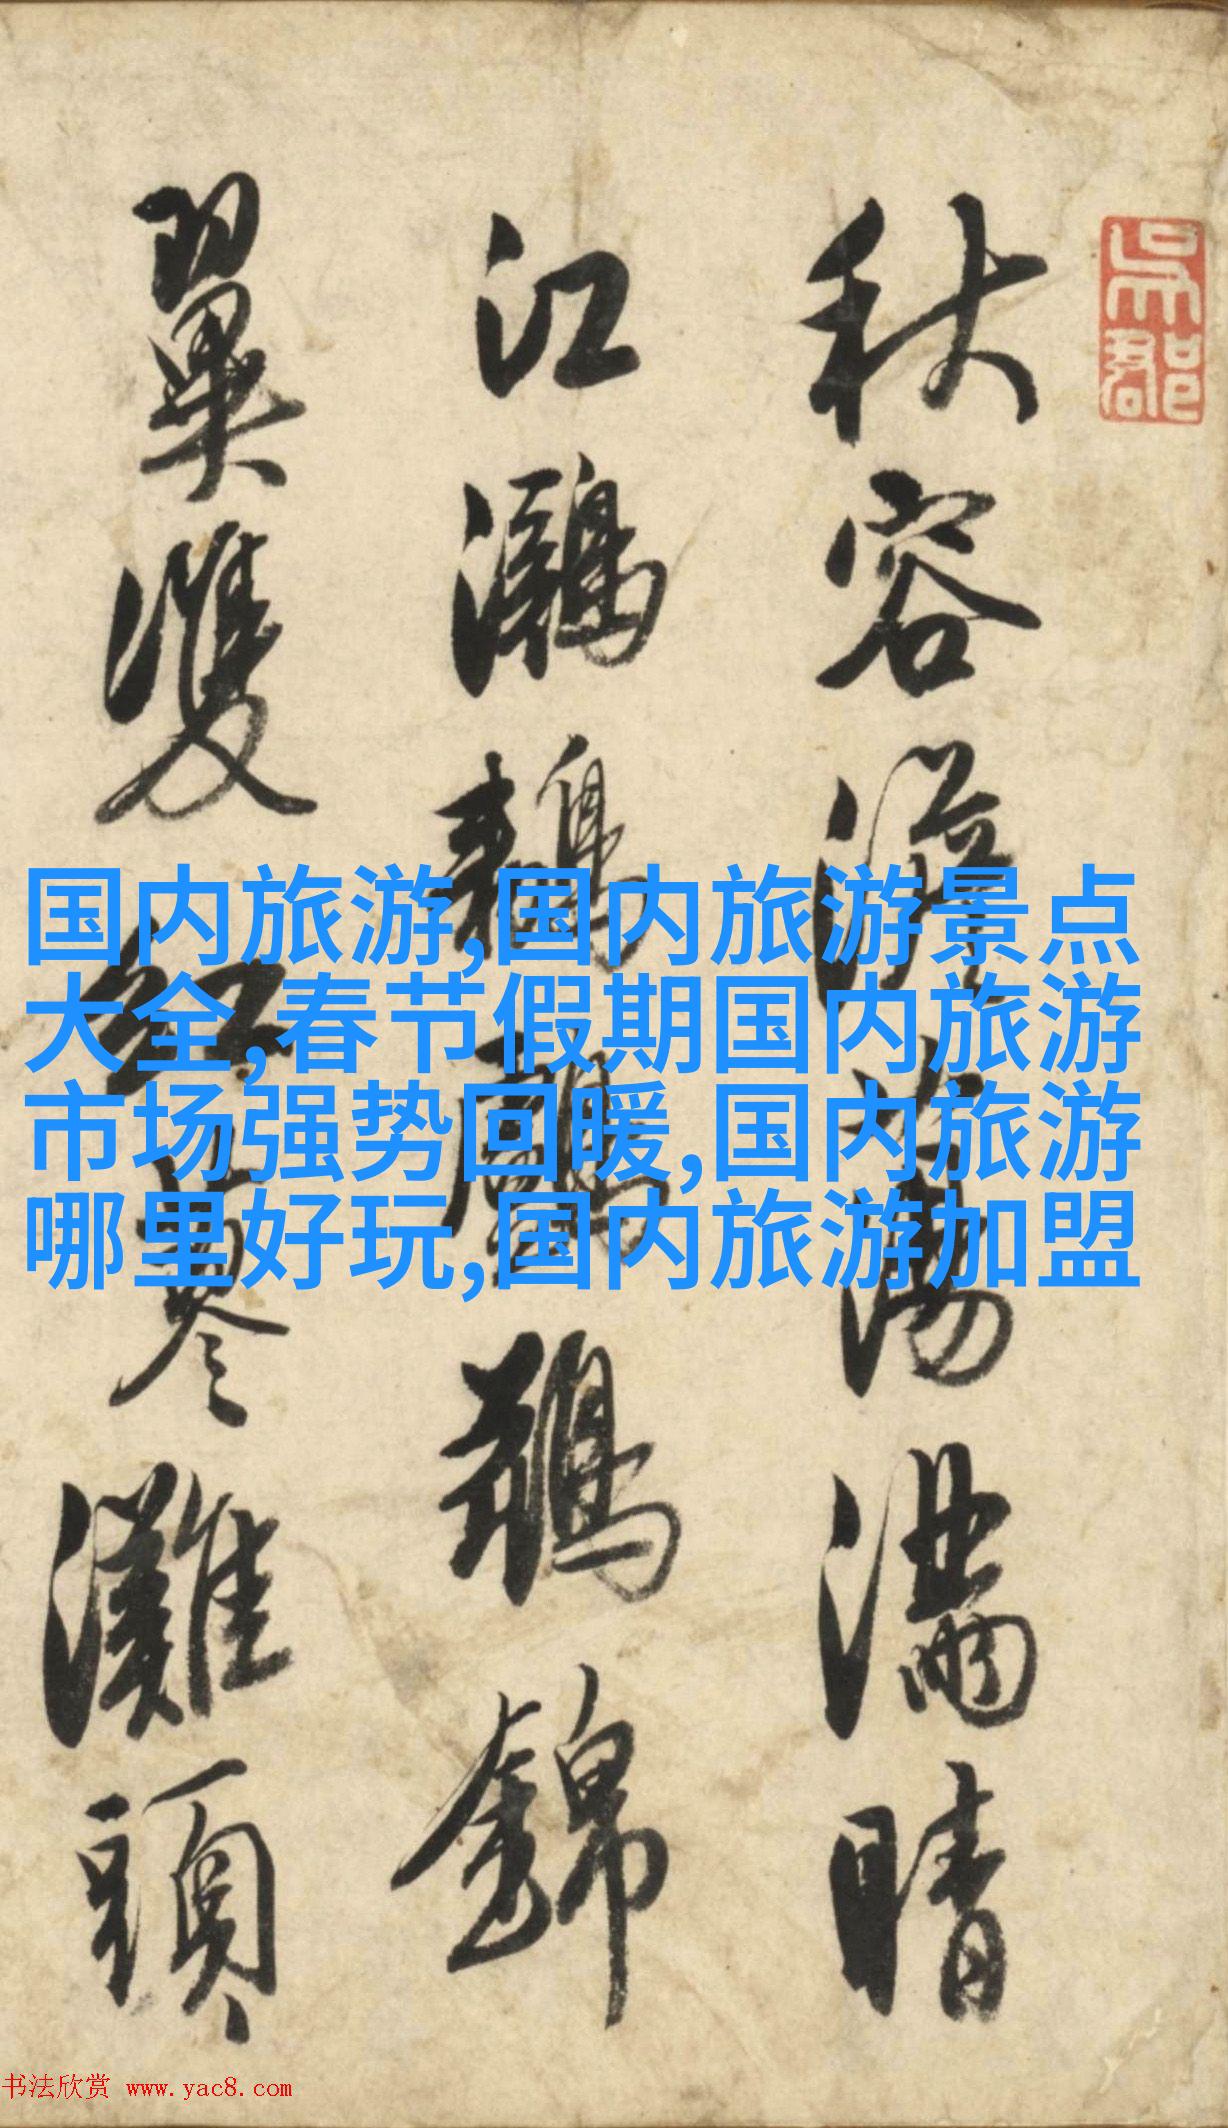 秋容淡蕩滿晴
江鸂鶒
鶄錦
翼雙紅蓼灘頭
吳郡
国内旅游,国内旅游景点
大全,春节假期国内旅游
市场强势回暖,国内旅游
哪里好玩,国内旅游加盟
书法欣赏 www.yac8.com